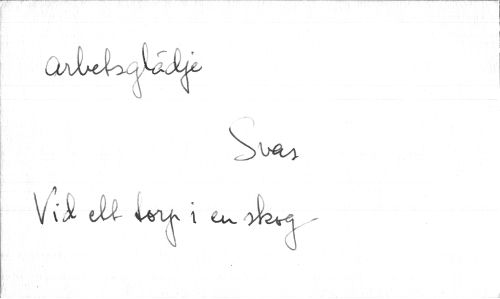 arbetsglädje
Svas
Vid ett torp i en skog